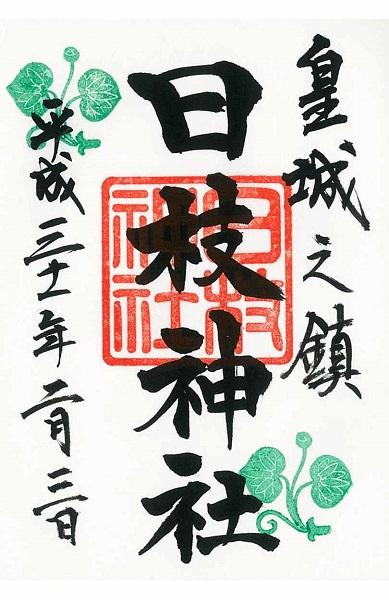 皇城之鎮
日枝神社
日枝
神社
平成三十一年二月三日